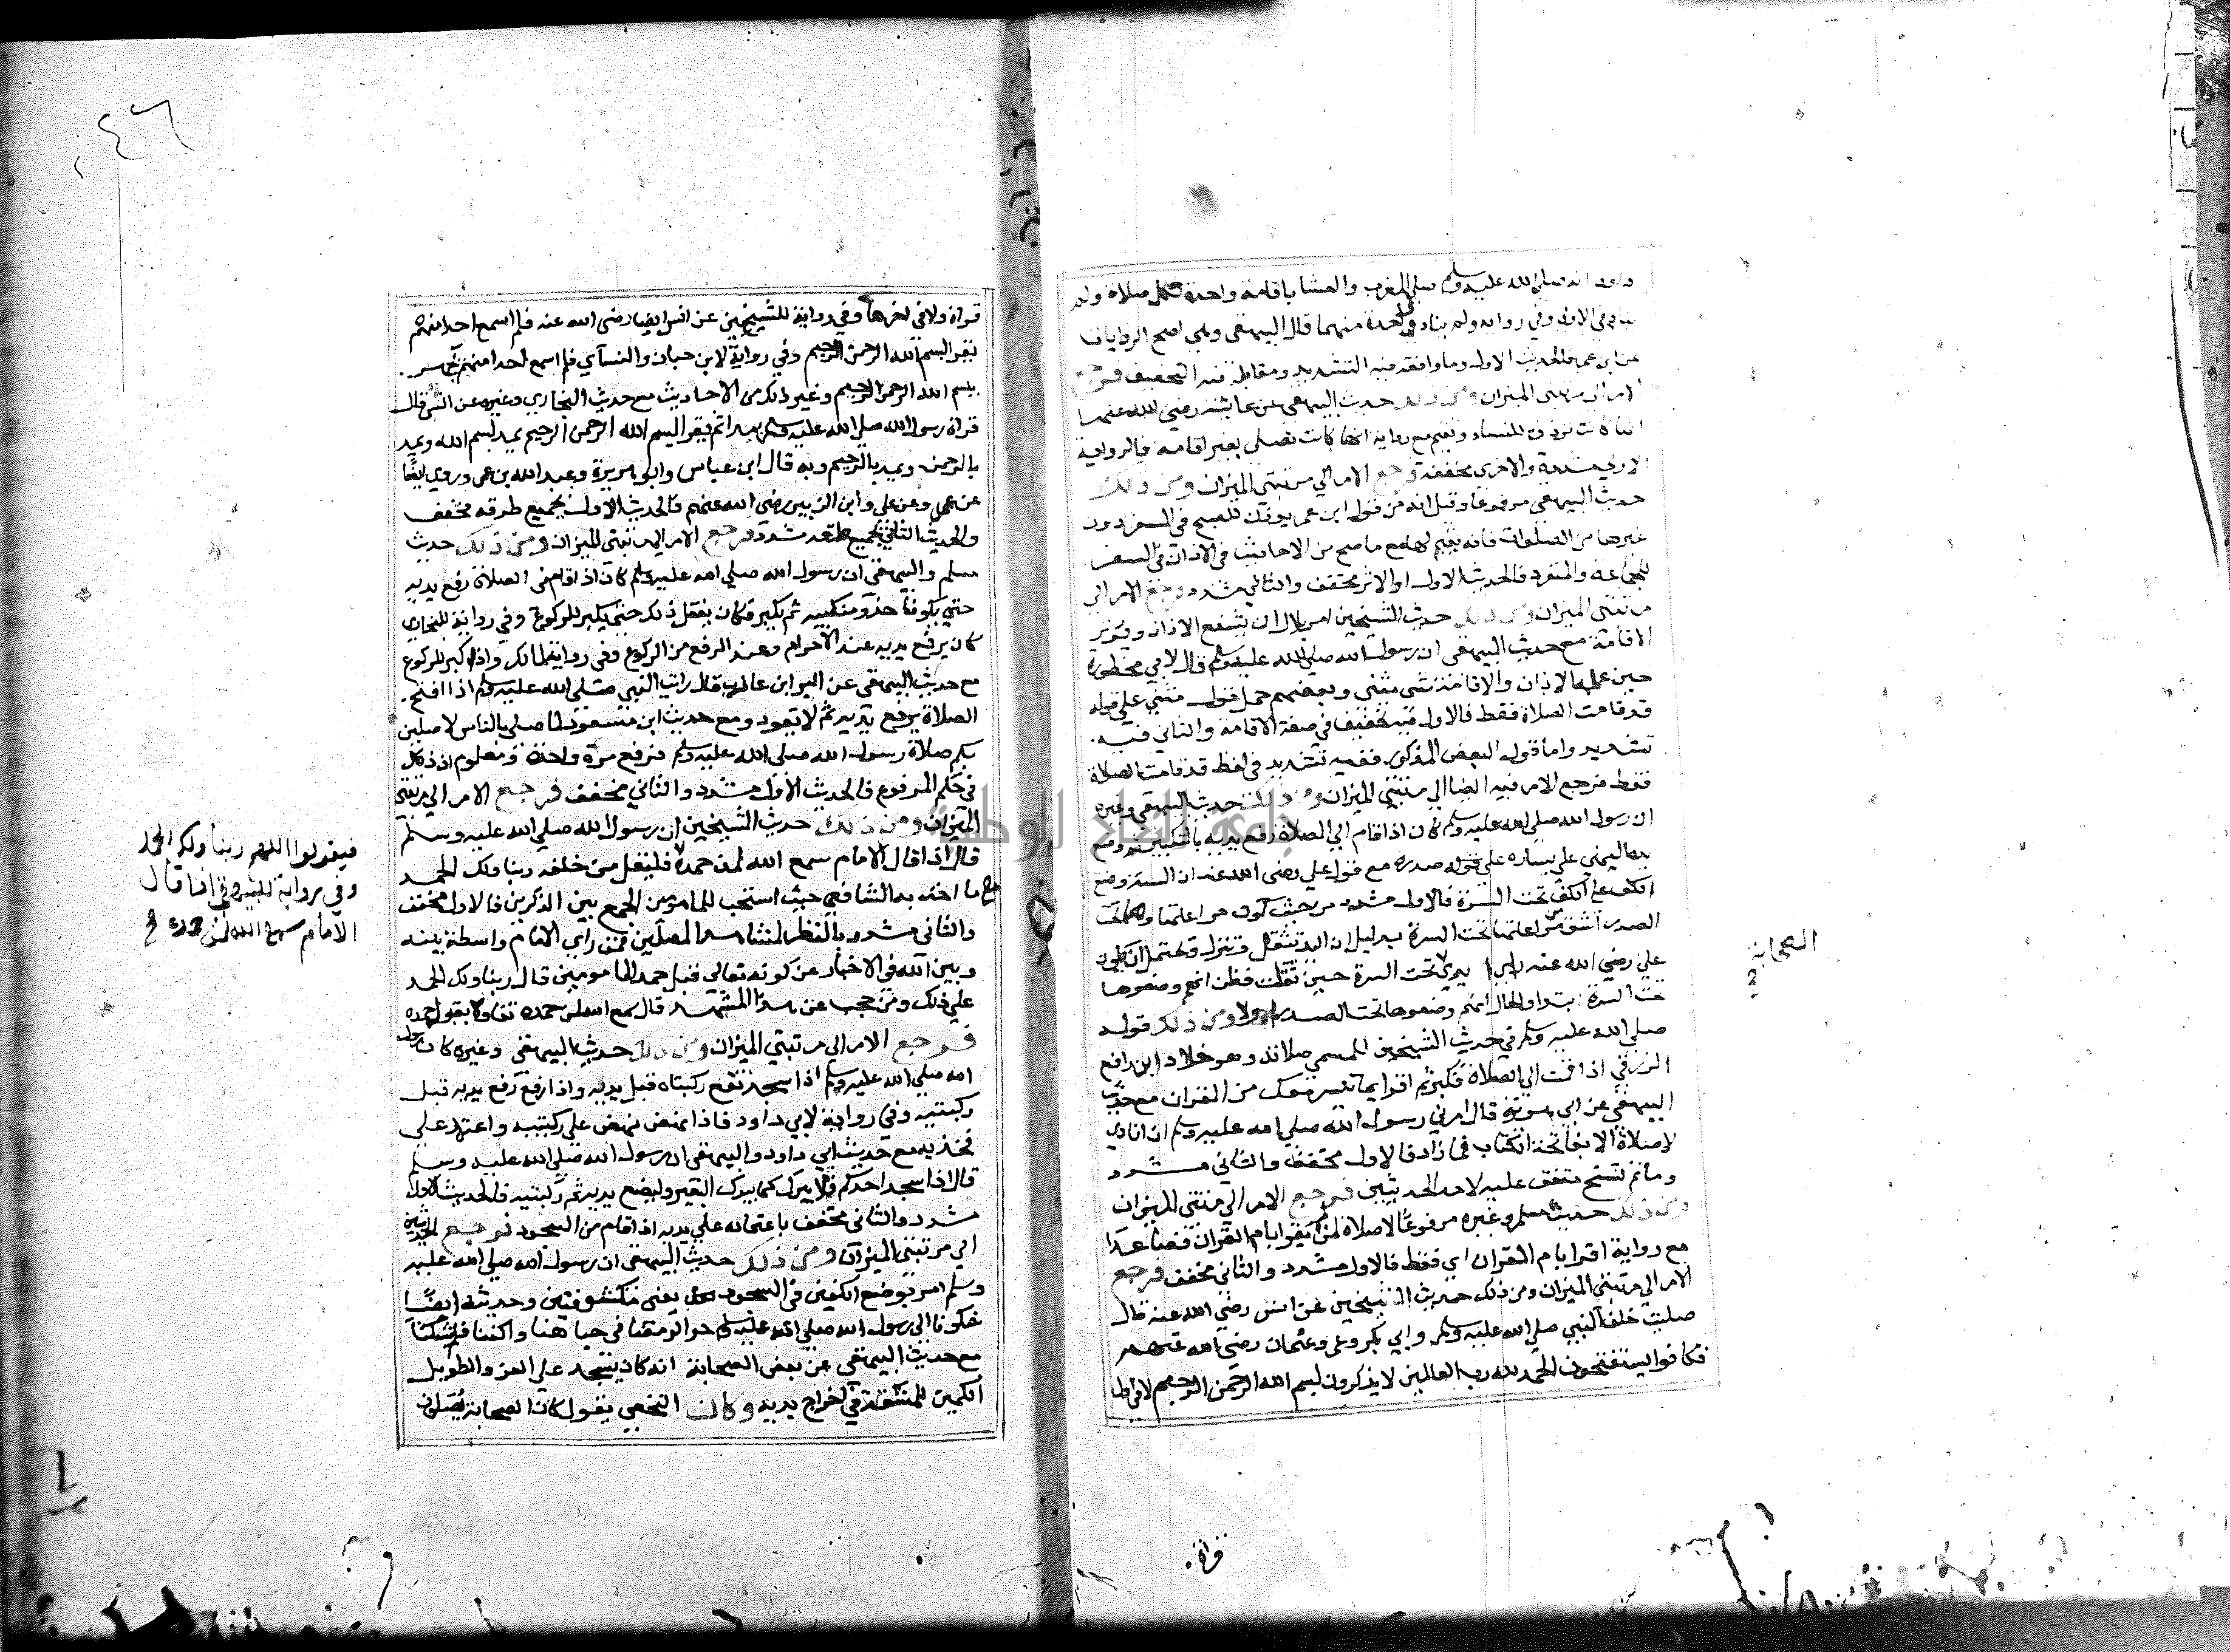 داود انه صلى الله عليه وسلم صلى المغرب والعشا باقامة واحدة لكل صلاة ولم
يناد في الاولى وفي رواية ولم يناد في واحدة منهما قال البيهقي وهي اصح الروايات
عن ابن عمر فالحديث الاول وما وافقه فيه التشديد ومقابله فيه التخفيف فرجع
الامر الى مرتبتي الميزان ومن ذلك حديث البيهقي عن عايشة رضي الله عنها
انها كانت توذن للنساء وتقيم مع رواية انها كانت تصلى بغير اقامة فالرواية
الاولى مشددة والاخرى مخففة فرجع الامر الي مرتبتي الميزان ومن ذلك
حديث البيهقي مرفوعا وقيل انه من قول ابن عمر يوذن للصبح في السفر دون
غيرها من الصلوات فانه يقيم لها مع ما صح من الاحاديث في الاذان في السفر
للجماعة والمنفرد فالحديث الاول او الاثر مخفف والثاني مشدد ورجع الامر الى
مرتبتي الميزان ومن ذلك حديث الشيخين امر بلال ان يشفع الاذان ويوتر
الاقامة مع حديث البيهقي ان رسول الله صلى الله عليه وسلم قال لابي محظورة
حين علمه الاذان والاقامة مثنى مثنى وبعضهم حمل قوله مثنى علي قوله
قد قامت الصلاة فقط فالاول فيه تخفيف في صفة الاقامة والثاني فيه
تشديد واما قول البعض المذكور ففيه تشديد في لفظ قد قامت الصلاة
فقط فرجع الامر فيه ايضا الي مرتبتي الميزان ومن ذلك حديث البيهقي وغيره
ان رسول الله صلى الله عليه وسلم كان اذا قام الي الصلاة رفع يديه بالتكبير ثم وضع
يده اليمني علي يساره على صدره مع قول علي رضي الله عنه ان السنة وضع
الكف على الكف تحت السرة فالاول مشدد من حيث كون مراعاتها وهما تحت
الصدر اشق من مراعاتها تحت السرة بدليل ان اليد تثقل وتنزل ويحتمل ان يكون
علي رضي الله عنه راي يدي تحت السرة حين ثقلت فظن انهم وضعوها
تحت السرة ابتدا والحال انهم وضعوها تحت الصدر اولا ومن ذلك قوله
صلى الله عليه وسلم في حديث الشيخين للمسي صلاته وهو خلاد ابن رافع
الزرقي اذا قمت الي الصلاة فكبر ثم اقرا بما تيسر معك من القران مع حديث
البيهقي عن ابي هريرة قال امرني رسول الله صلى الله عليه وسلم ان انادي
لا صلاة الا بفاتحة الكتاب فما زاد فالاول مخفف والثاني مشدد
وما ثم نسخ متفق عليه لاحد الحديثين فرجع الامر الي مرتبتي الميزان
ومن ذلك حديث مسلم وغيره مرفوعا لا صلاة لمن لم يقرا بام القران فصاعدا
مع رواية اقرا بام القران اي فقط فالاول مشدد والثاني مخفف فرجع
الامر الي مرتبتي الميزان ومن ذلك حديث الشيخين عن انس رضي الله عنه قال
صليت خلف النبي صلى الله عليه وسلم وابي بكر وعمر وعثمان رضي الله عنهم
فكانوا يستفتحون الحمد لله رب العالمين لا يذكرون بسم الله الرحمن الرحيم لا في اول
الصحابة
قراة
٤٦
قراة ولا في اخرها وفي رواية للشيخين عن انس ايضا رضي الله عنه فلم اسمع احدا منهم
يقرا بسم الله الرحمن الرحيم وفي رواية لابن حبان والنسآي فلم اسمع احدا منهم يجهر
ببسم الله الرحمن الرحيم وغير ذلك من الاحاديث مع حديث البخاري وغيره عن انس قال
قراة رسول الله صلى الله عليه وسلم مدا ثم يقرا بسم الله الرحمن الرحيم يمد بسم الله ويمد
بالرحمن ويمد بالرحيم وبه قال ابن عباس وابو هريرة وعبد الله بن عمر وروي ايضا
عن عمر وعن علي وابن الزبير رضي الله عنهم فالحديث الاول بجميع طرقه مخفف
والحديث الثاني بجميع طرقه مشدد فرجع الامر الي مرتبتي الميزان ومن ذلك حديث
مسلم والبيهقي ان رسول الله صلى الله عليه وسلم كان اذا قام في الصلاة رفع يديه
حتى يكونا حذو منكبيه ثم يكبر وكان يفعل ذلك حتى يكبر للركوع وفي رواية للبخاري
كان يرفع يديه عند الاحرام وعند الرفع من الركوع وفي رواية لمالك واذا كبر للركوع
مع حديث البيهقي عن البرا بن عازب قال رايت النبي صلى الله عليه وسلم اذا افتتح
الصلاة يرفع يديه ثم لا يعود ومع حديث ابن مسعود لما صلى بالناس لاصلين
بكم صلاة رسول الله صلى الله عليه وسلم فرفع مرة واحدة ومعلوم ان ذلك
في حكم المرفوع فالحديث الاول مشدد والثاني مخفف فرجع الامر الي مرتبتي
الميزان ومن ذلك حديث الشيخين ان رسول الله صلى الله عليه وسلم
قال اذا قال الامام سمع الله لمن حمده فليقل من خلفه ربنا ولك الحمد
مع ما اخذ به الشافعي حيث استحب للماموين الجمع بين الذكرين فالاول مخفف
والثاني مشدد بالنظر لمشاهد المصلين فمن راي الامام واسطة بينه
وبين الله في الاخبار عن كونه تعالي قبل حمد المامومين قال ربنا ولك الحمد
علي ذلك ومن حجب عن هذا المشهد قال سمع الله لمن حمده تفاولا بقبول حمده
فرجع الامر الي مرتبتي الميزان ومن ذلك حديث البيهقي وغيره كان رسول
الله صلى الله عليه وسلم اذا سجد تقع ركبتاه قبل يديه واذا رفع رفع يديه قبل
ركبتيه وفي رواية لابي داود فاذا نهض نهض علي ركبتيه واعتمد علي
فخذيه مع حديث ابي داود والبيهقي ان رسول الله صلى الله عليه وسلم
قال اذا سجد احدكم فلا يبرك كما يبرك البعير وليضع يديه ثم ركبتيه فالحديث الاول
مشدد والثاني مخفف باعتماده علي يديه اذا قام من السجود فرجع الحديثين
الي مرتبتي الميزان ومن ذلك حديث البيهقي ان رسول الله صلى الله عليه
وسلم امر بوضع الكفين في السجود يعني مكشوفتين وحديثه ايضا
شكونا الي رسول الله صلى الله عليه وسلم حر الرمضا في جباهنا واكفنا فلم يشكنا
مع حديث البيهقي عن بعض الصحابة انه كان يسجد علي الفرو الطويل
الكمين للمشقة في اخراج يديه وكان النخعي يقول كان الصحابة يصلون
فيقولوا اللهم ربنا ولك الحمد
وفي رواية للبيهقي اذا قال
الامام سمع الله لمن حمده
جامعة النجاح الوطنية